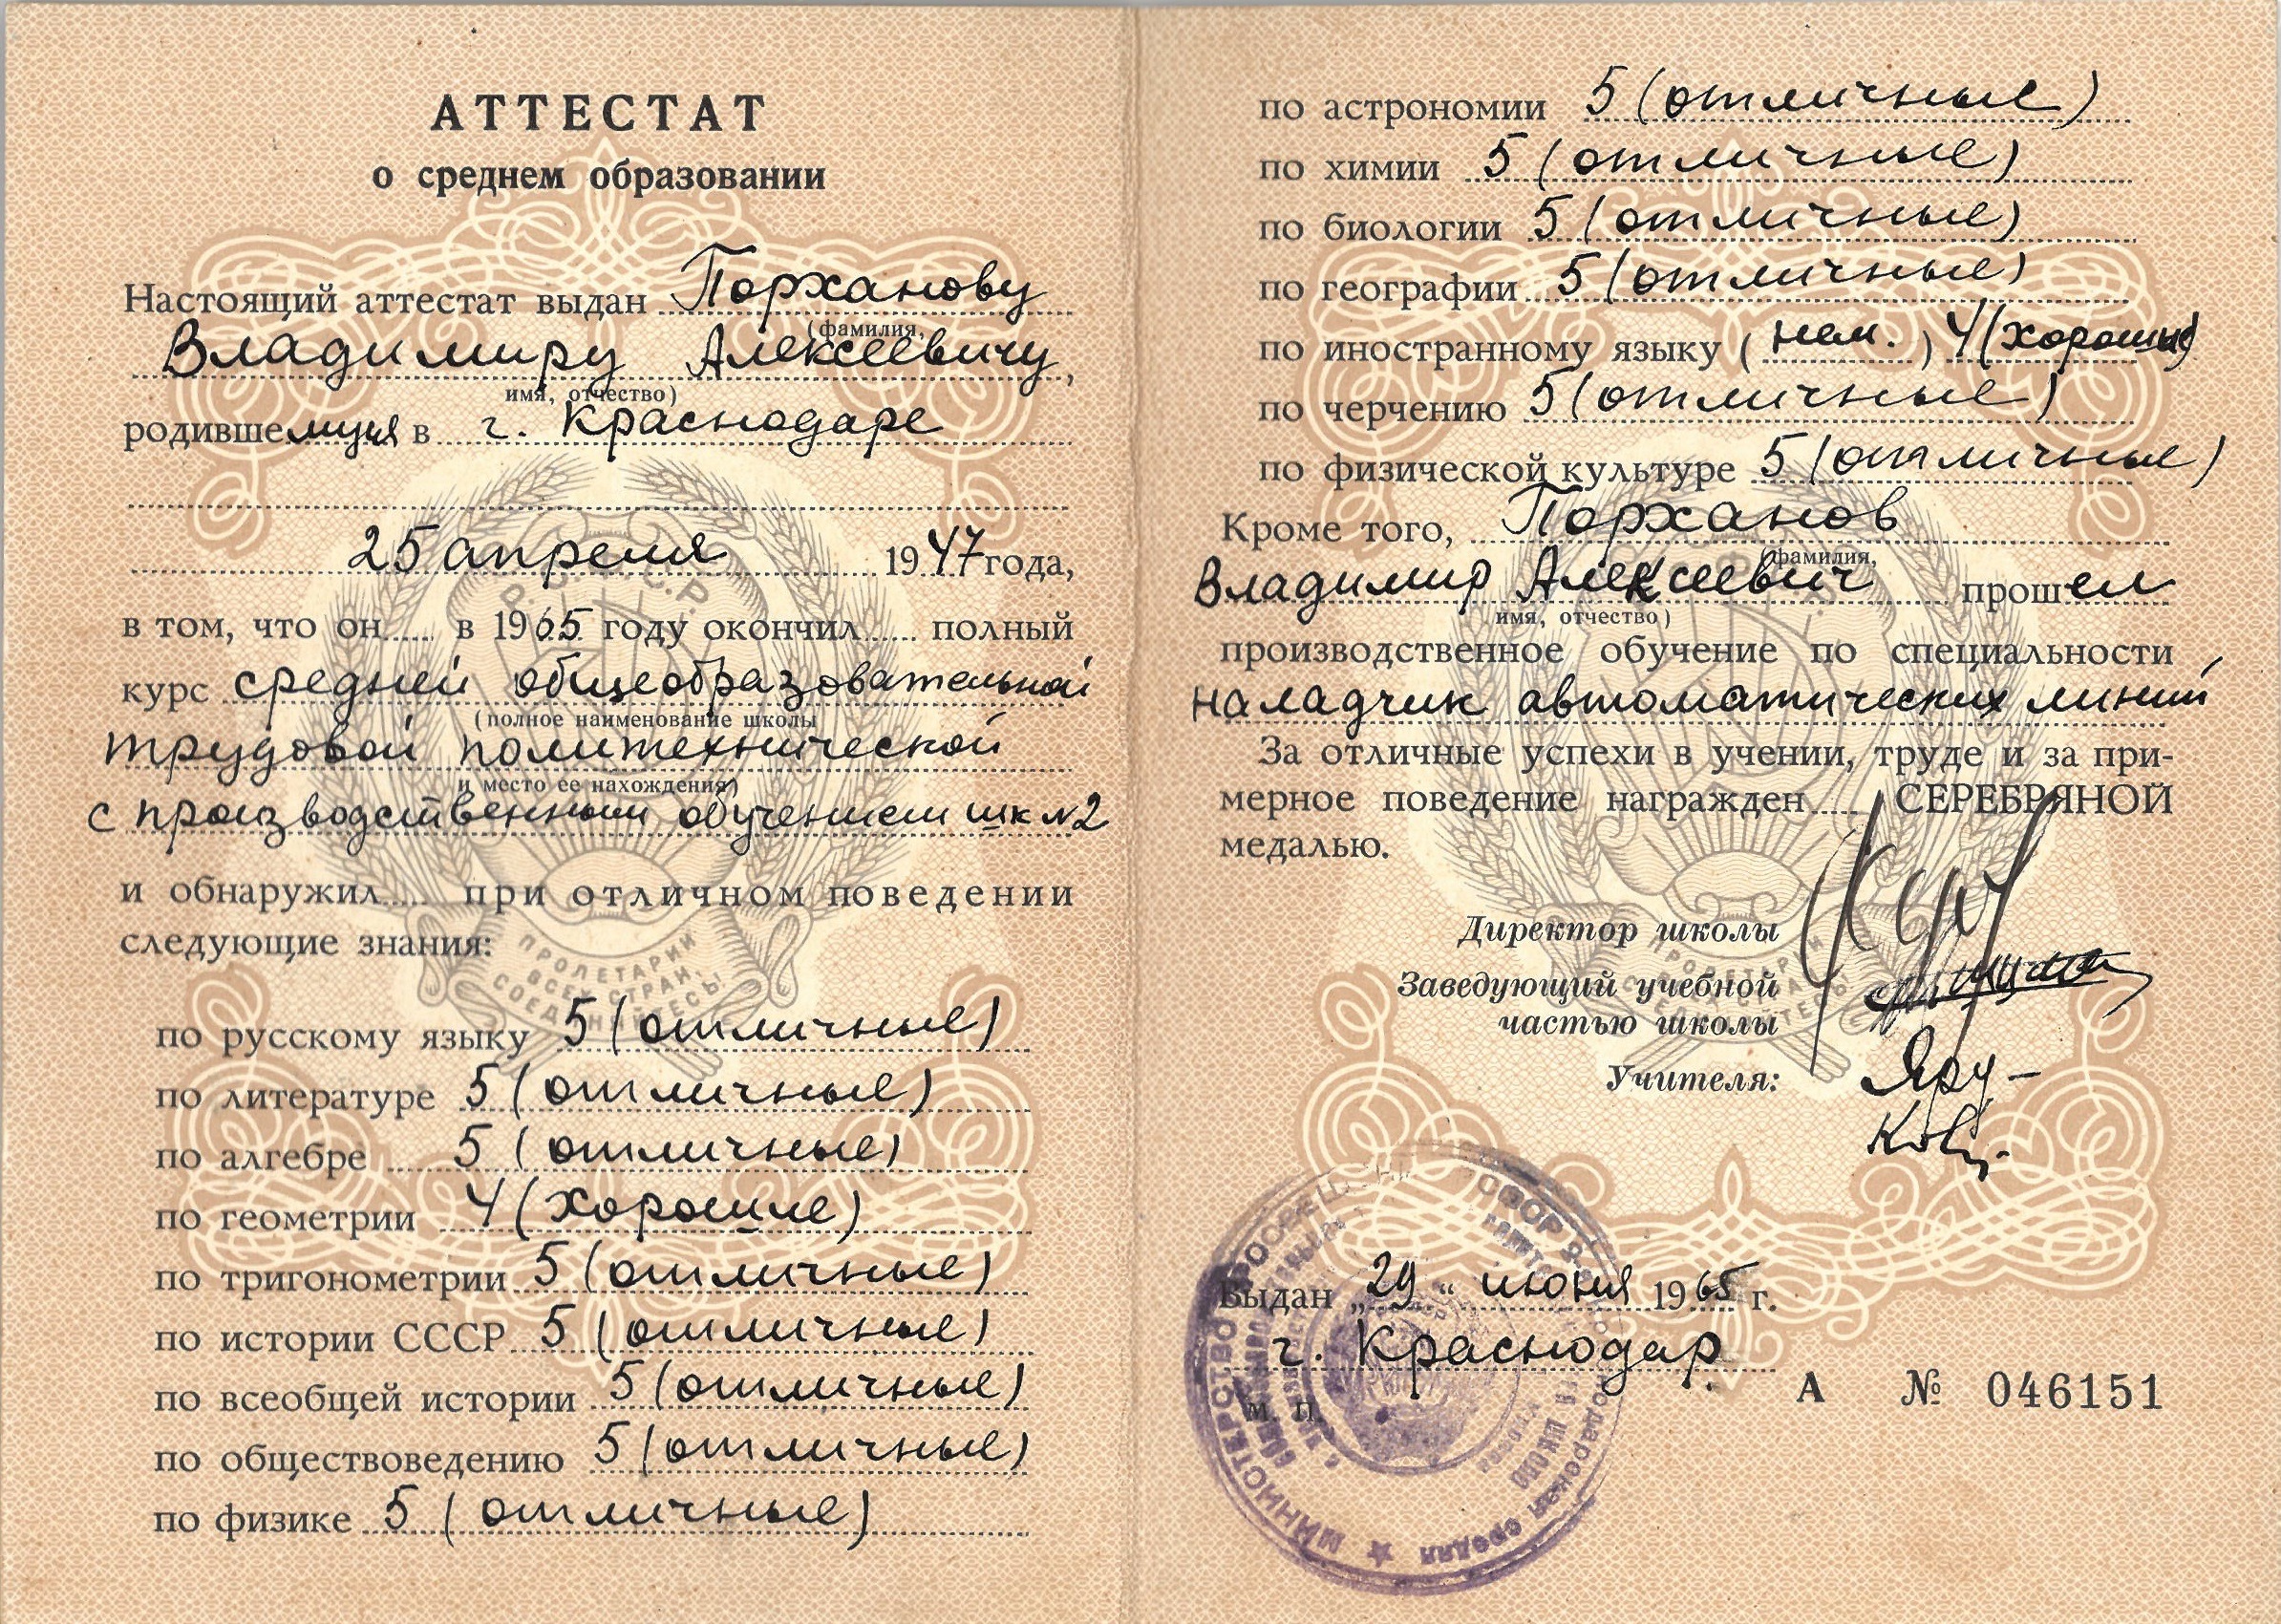 АТТЕСТАТ
о среднем образовании
Настоящий аттестат выдан Порханову
(фамилия,
Владимиру Алексеевичу,
имя, отчество)
родившемуся в г. Краснодаре
25 апреля 1947 года,
в том, что он в 1965 году окончил полный
курс средней общеобразовательной
(полное наименование школы
трудовой политехнической
и место ее нахождения)
с производственным обучением шк №2
и обнаружил при отличном поведении
следующие знания:
по русскому языку 5 (отличные)
по литературе 5 (отличные)
по алгебре 5 (отличные)
по геометрии 4 (хорошие)
по тригонометрии 5 (отличные)
по истории СССР 5 (отличные)
по всеобщей истории 5 (отличные)
по обществоведению 5 (отличные)
по физике 5 (отличные)
ПРОЛЕТАРИИ
ВСЕХ СТРАН,
СОЕДИНЯЙТЕСЬ!
по астрономии 5 (отличные)
по химии 5 (отличные)
по биологии 5 (отличные)
по географии 5 (отличные)
по иностранному языку (нем.) 4 (хорошие)
по черчению 5 (отличные)
по физической культуре 5 (отличные)
Кроме того, Порханов
(фамилия,
Владимир Алексеевич прошел
имя, отчество)
производственное обучение по специальности
наладчик автоматических линий
За отличные успехи в учении, труде и за при-
мерное поведение награжден СЕРЕБРЯНОЙ
медалью.
Директор школы
Заведующий учебной
частью школы
Учителя:
Выдан „29“ июня 1965 г.
г. Краснодар
м. п.
А № 046151
МИНИСТЕРСТВО ПРОСВЕЩЕНИЯ РСФСР